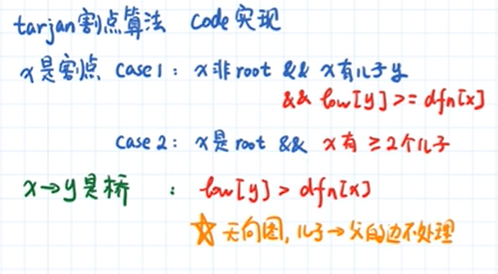 tarjan割点算法 Code实现
x是割点 Case1: x非root && x有儿子y
&& low[y]>=dfn[x]
Case 2: x是root && x有≥2个儿子
x→y是桥 : low[y]>dfn[x]
☆ 无向图, 儿子→父的边不处理